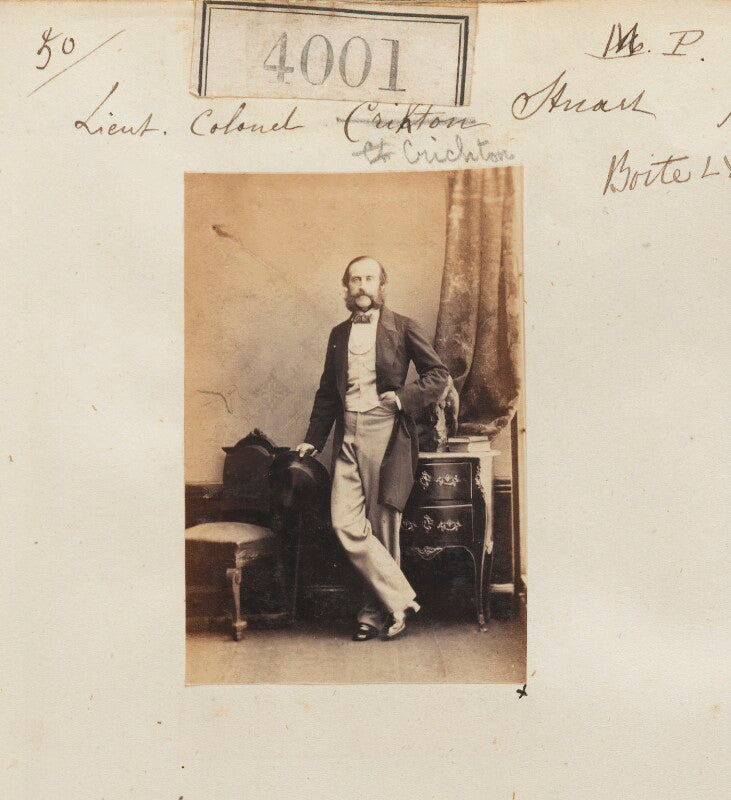 50
4001
M. P.
Lieut. Colonel Crikton Stuart
Ct Crichton
Boite